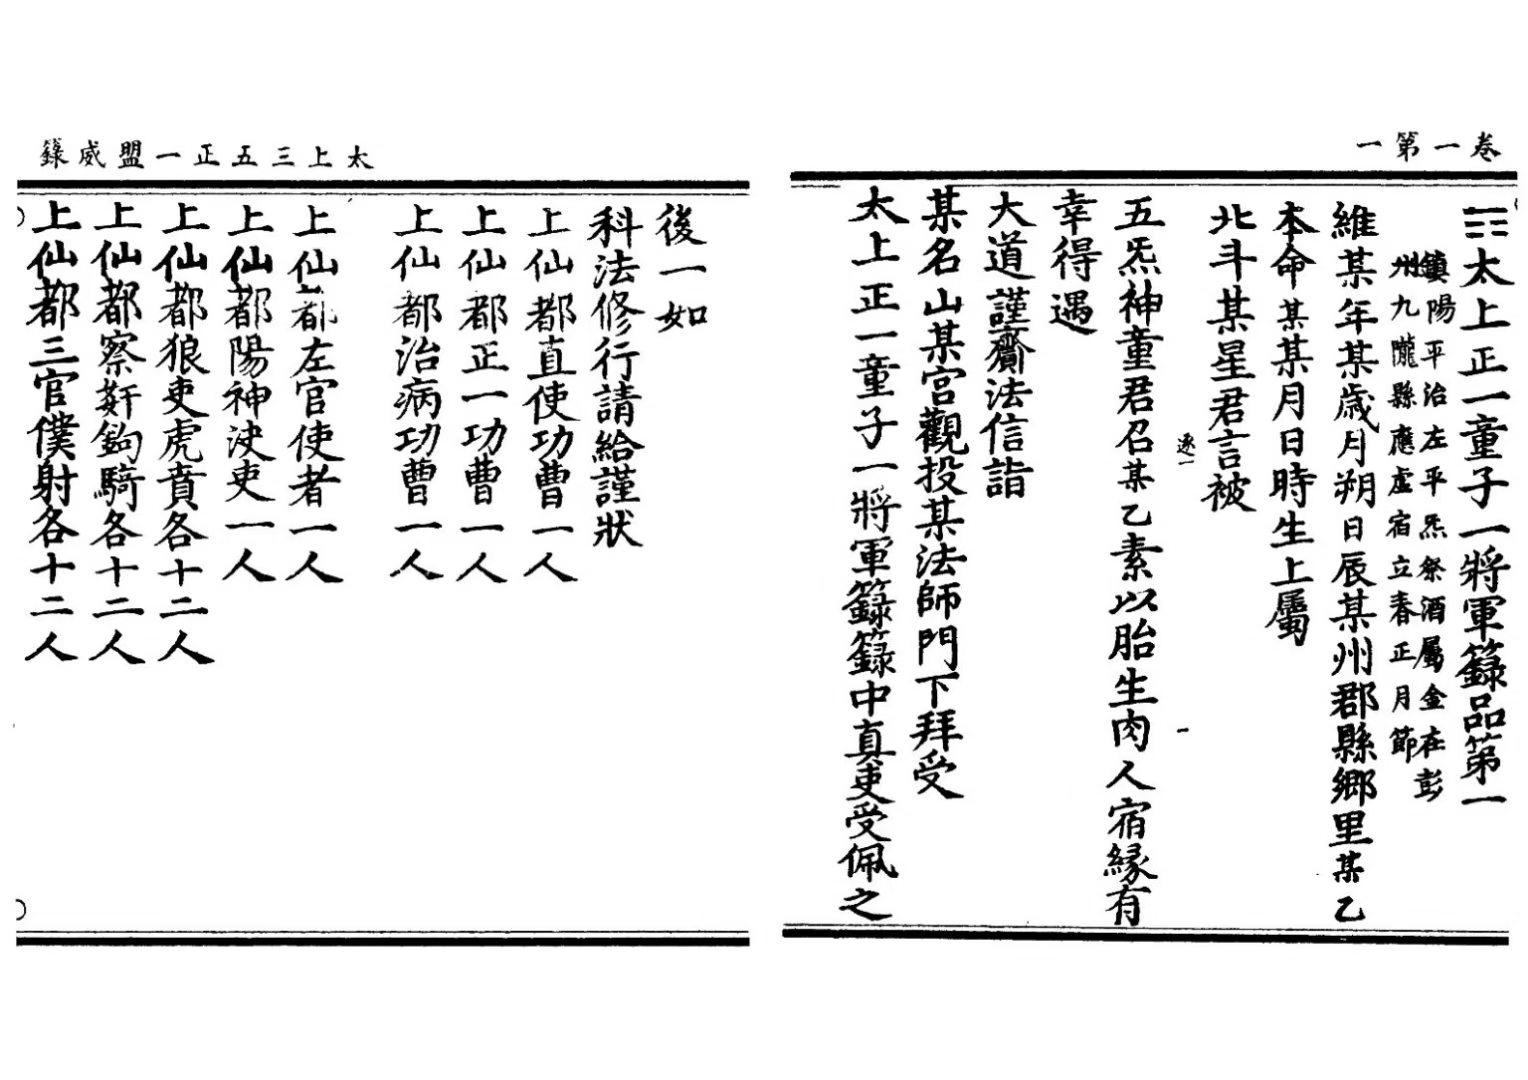 卷一第一
☶太上正一童子一將軍籙品第一
鎮陽平治左平炁祭酒屬金在彭
州九隴縣應虛宿立春正月節
維某年某歲月朔日辰某州郡縣鄉里某乙
本命某某月日時生上屬
北斗某星君言被
逐一
五炁神童君召某乙素以胎生肉人宿緣有
幸得遇
大道謹齎法信詣
某名山某宮觀投某法師門下拜受
太上正一童子一將軍籙籙中真吏受佩之
太上三五正一盟威籙
後一如
科法修行請給謹狀
上仙都直使功曹一人
上仙都正一功曹一人
上仙都治病功曹一人
上仙都左官使者一人
上仙都陽神決吏一人
上仙都狼吏虎賁各十二人
上仙都察姧鉤騎各十二人
上仙都三官僕射各十二人